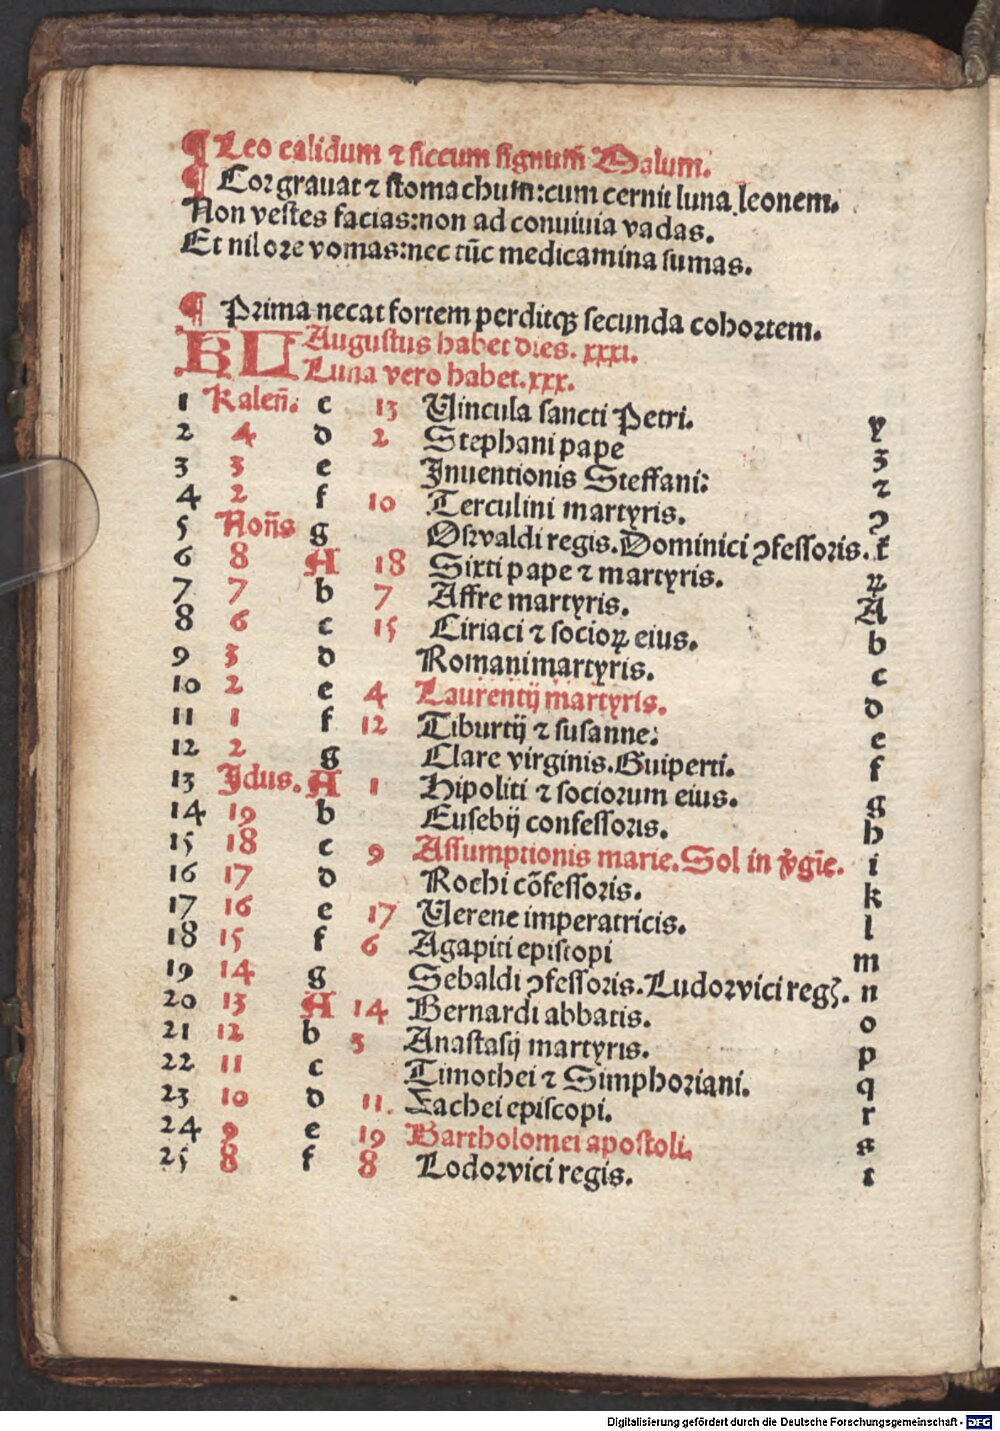 ¶ Leo calidum ⁊ siccum signum̄ Malum.
¶ Cor grauat ⁊ stomachum:cum cernit luna leonem.
Non vestes facias:non ad conuiuia vadas.
Et nil ore vomas:nec tūc medicamina sumas.
¶ Prima necat fortem perditqꝫ secunda cohortem.
KL Augustus habet dies. xxxi.
Luna vero habet.xxx.
1 Kaleñ. c 13 Vincula sancti Petri. y
2 4 d 2 Stephani pape ʒ
3 3 e Inuentionis Steffani: ⁊
4 2 f 10 Terculini martyris. ꝯ
5 Noñs g Oswaldi regis.Dominici ꝯfessoris. ť
6 8 A 18 Sixti pape ⁊ martyris. ꝝ
7 7 b 7 Affre martyris. A
8 6 c 15 Ciriaci ⁊ socioꝝ eius. b
9 3 d Romani martyris. c
10 2 e 4 Laurentij martyris. d
11 1 f 12 Tiburtij ⁊ susanne: e
12 2 g Clare virginis.Guiperti. f
13 Idus. A 1 Hipoliti ⁊ sociorum eius. g
14 19 b Eusebij confessoris. h
15 18 c 9 Assumptionis marie.Sol in v̓gīe. i
16 17 d Rochi cōfessoris. k
17 16 e 17 Verene imperatricis. l
18 15 f 6 Agapiti episcopi m
19 14 g Sebaldi ꝯfessoris.Ludowici regꝭ. n
20 13 A 14 Bernardi abbatis. o
21 12 b 3 Anastasij martyris. p
22 11 c Timothei ⁊ Simphoriani. q
23 10 d 11. Zachei episcopi. r
24 9 e 19 Bartholomei apostoli. s
25 8 f 8 Lodowici regis. t
Digitalisierung gefördert durch die Deutsche Forschungsgemeinschaft - DFG